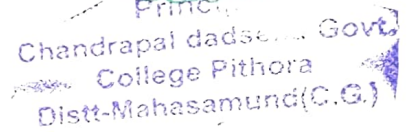 Princi
Chandrapal dadse.... Govt.
College Pithora
Distt-Mahasamund(C.G.)